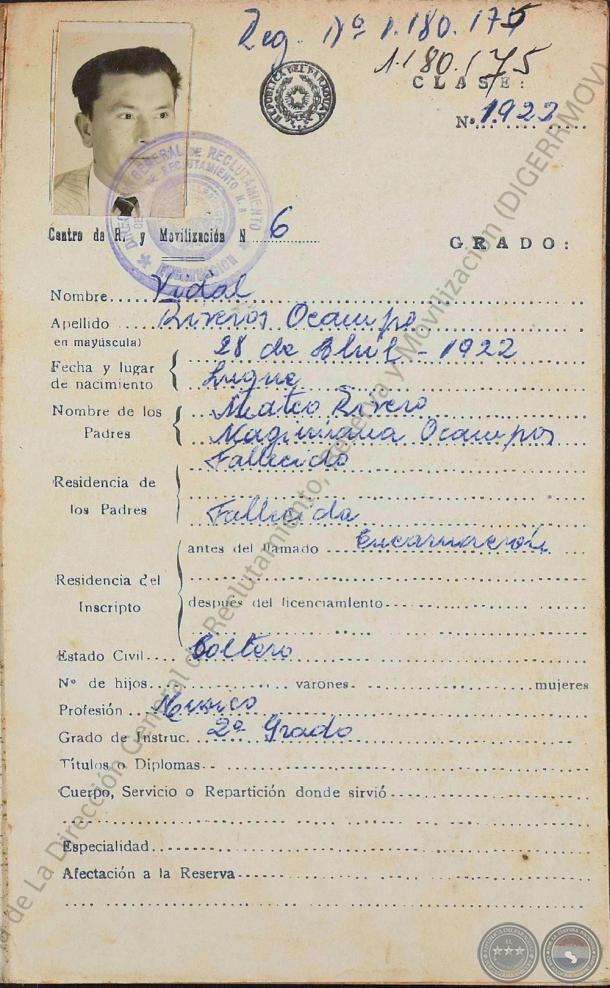 Reg. Nº 1.180.175
1180.175
CLASE:
REPUBLICA DEL PARAGUAY
Nº 1922
DIRECCION GENERAL DE RECLUTAMIENTO
Centro de R. y Movilización N 6
GRADO:
Nombre Vidal
Apellido Riveros Ocampo
en mayúscula)
28 de Abril - 1922
Fecha y lugar
de nacimiento Luque
Nombre de los Mateo Rivero
Padres Maximiana Ocampos
Fallecido
Residencia de
los Padres Fallecida
antes del llamado Encarnación
Residencia del
Inscripto después del licenciamiento
Estado Civil Soltero
Nº de hijos varones mujeres
Profesión Músico
Grado de Instruc. 2º Grado
Títulos o Diplomas
Cuerpo, Servicio o Repartición donde sirvió
Especialidad
Afectación a la Reserva
de La Dirección General de Reclutamiento, Reserva y Movilización (DIGERRMOV)